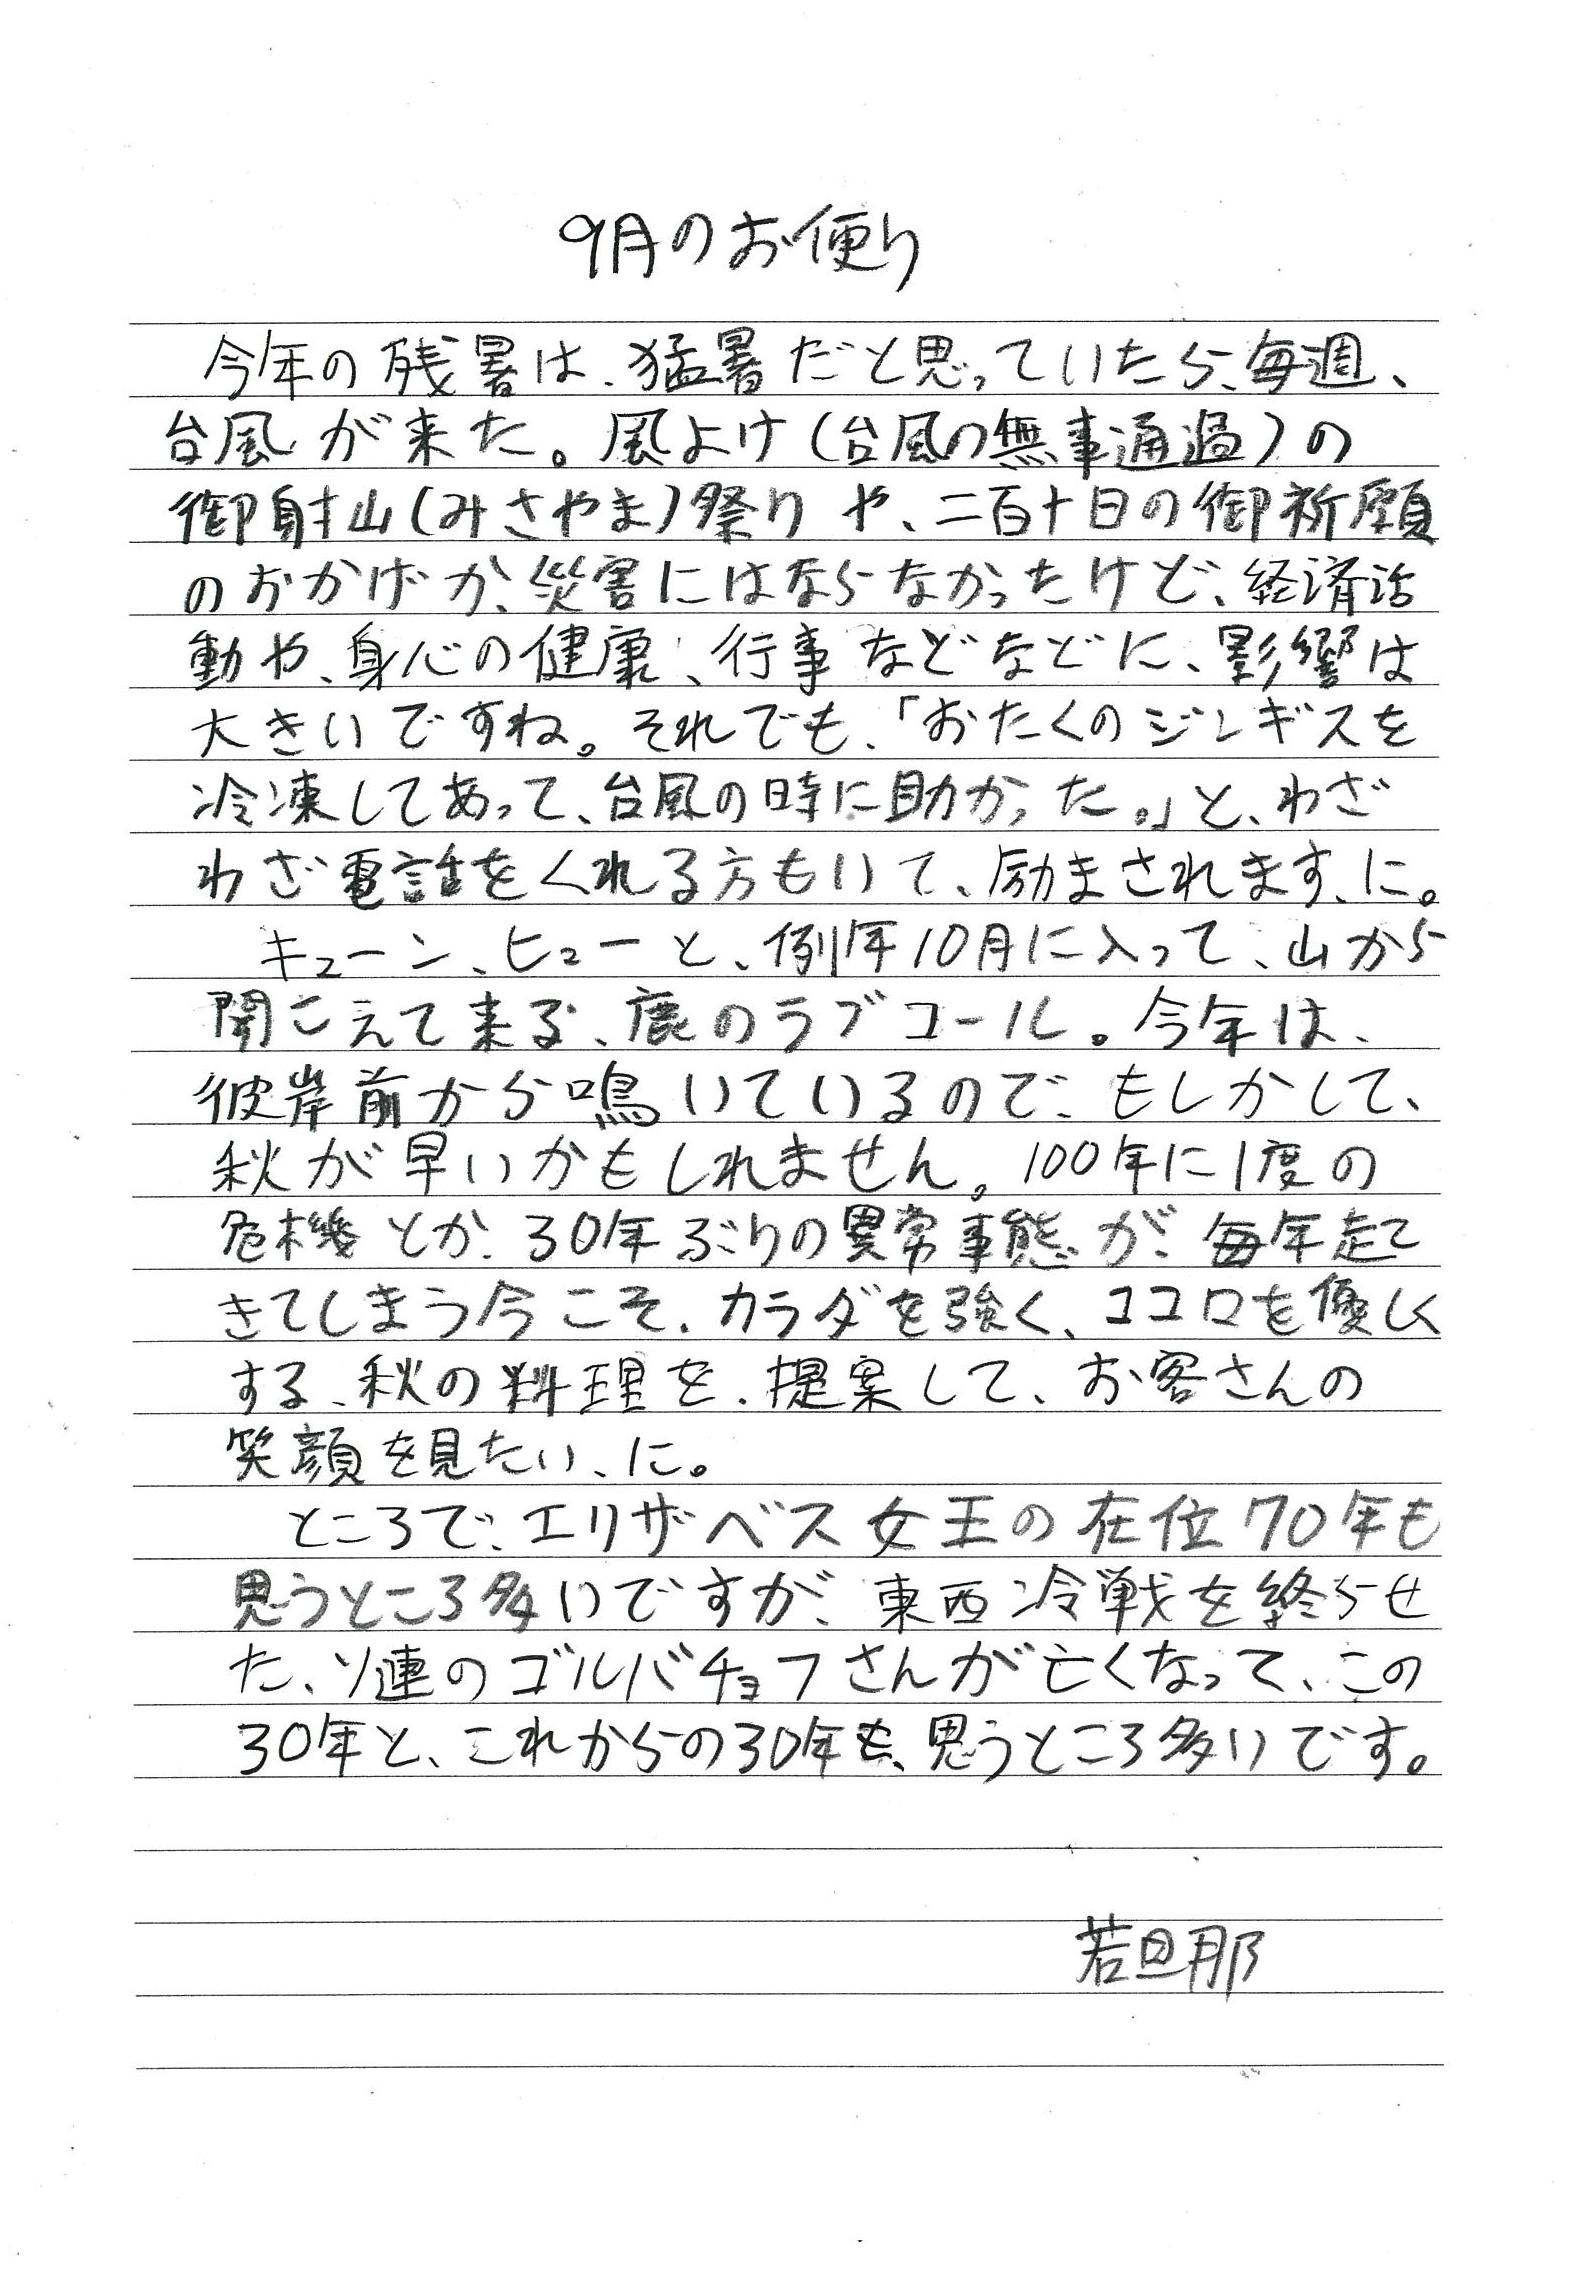 9月のお便り
今年の残暑は、猛暑だと思っていたら、毎週、
台風が来た。風よけ(台風の無事通過)の
御射山(みさやま)祭りや、二百十日の御祈願
のおかげか、災害にはならなかったけど、経済活
動や、身心の健康、行事などなどに、影響は
大きいですね。それでも、「おたくのジンギスを
冷凍してあって、台風の時に助かった。」と、わざ
わざ電話をくれる方もいて、励まされます、に。
キューン、ヒューと、例年10月に入って、山から
聞こえて来る、鹿のラブコール。今年は、
彼岸前から鳴いているので、もしかして、
秋が早いかもしれません。100年に1度の
危機とか、30年ぶりの異常事態が、毎年起て
きてしまう今こそ、カラダを強く、ココロを優しく
する、秋の料理を、提案して、お客さんの
笑顔を見たい、に。
ところで、エリザベス女王の在位70年も
思うところ多いですが、東西冷戦を終らせ
た、ソ連のゴルバチョフさんが亡くなって、この
30年と、これからの30年も、思うところ多いです。
若旦那